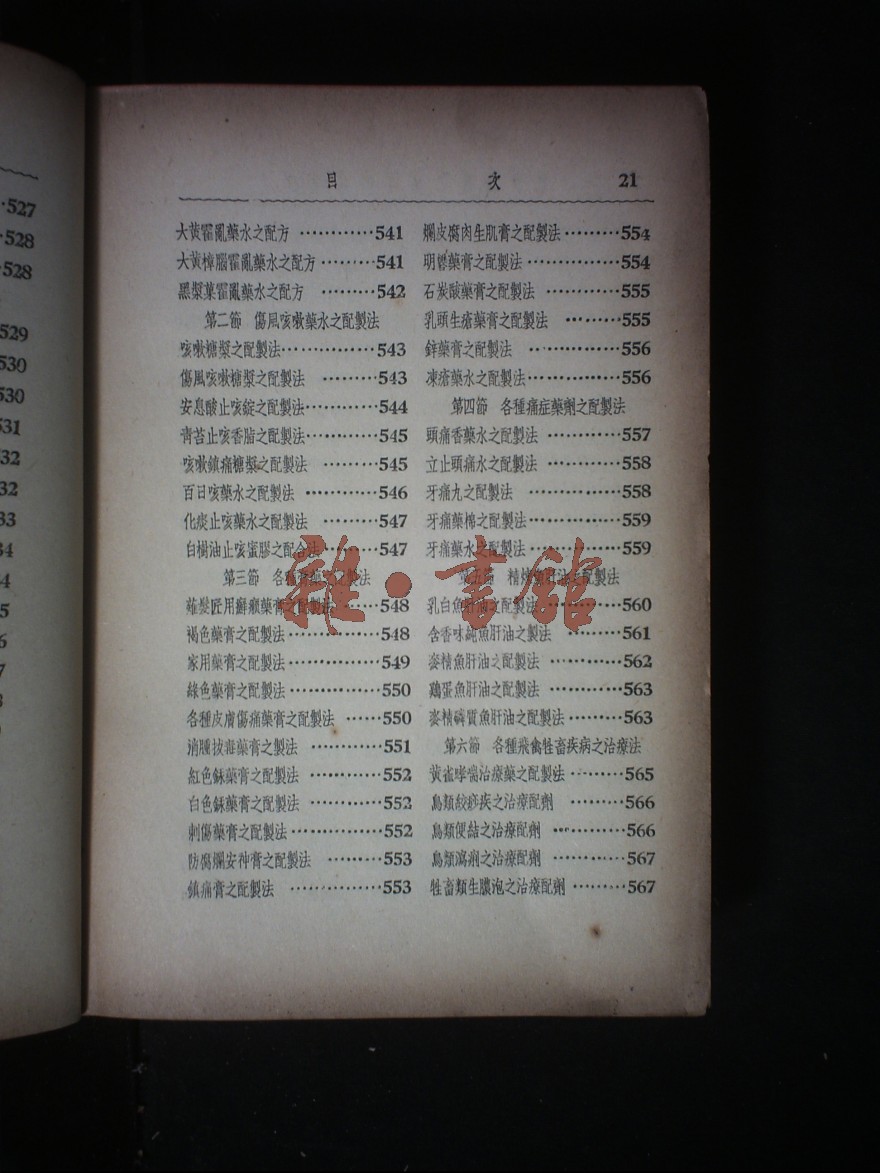 527
528
528
529
530
530
531
32
32
33
34
4
5
6
7
3
目 次 21
大黃霍亂藥水之配方 …………541
大黃樟腦霍亂藥水之配方 ………541
黑漿菓霍亂藥水之配方 ………542
第二節 傷風咳嗽藥水之配製法
咳嗽糖漿之配製法……………543
傷風咳嗽糖漿之配製法 ………543
安息酸止咳錠之配製法…………544
靑苔止咳香脂之配製法…………545
咳嗽鎮痛糖漿之配製法 ………545
百日咳藥水之配製法 …………546
化痰止咳藥水之配製法 ………547
白樹油止咳蜜膠之配合法………547
第三節 各種膏藥之配製法
薙髮匠用癬癩藥膏之配製法 ……548
褐色藥膏之配製法 ……………548
家用藥膏之配製法 ……………549
綠色藥膏之配製法 ……………550
各種皮膚傷痛藥膏之配製法 ……550
消腫拔毒藥膏之配製法 …………551
紅色銾藥膏之配製法 …………552
白色銾藥膏之配製法 …………552
刺傷藥膏之配製法……………552
防腐爛安神膏之配製法 ………553
鎮痛膏之配製法 ……………553
爛皮腐肉生肌膏之配製法 ………554
明礬藥膏之配製法……………554
石炭酸藥膏之配製法 …………555
乳頭生瘡藥膏之配製法 ………555
鋅藥膏之配製法 ……………556
凍瘡藥水之配製法……………556
第四節 各種痛症藥劑之配製法
頭痛香藥水之配製法 …………557
立止頭痛水之配製法 …………558
牙痛丸之配製法 ……………558
牙痛藥棉之配製法……………559
牙痛藥水之配製法……………559
第五節 精煉魚肝油之配製法
乳白魚肝油之配製法 …………560
含香味純魚肝油之製法 ………561
麥精魚肝油之配製法 …………562
鷄蛋魚肝油之配製法 …………563
麥精磷質魚肝油之配製法 ………563
第六節 各種飛禽牲畜疾病之治療法
黃雀哮喘治療藥之配製法 ………565
鳥類絞痧疾之治療配劑 ………566
鳥類便結之治療配劑 …………566
鳥類瀉痢之治療配劑 …………567
牲畜類生膿泡之治療配劑 ………567
雜·書館